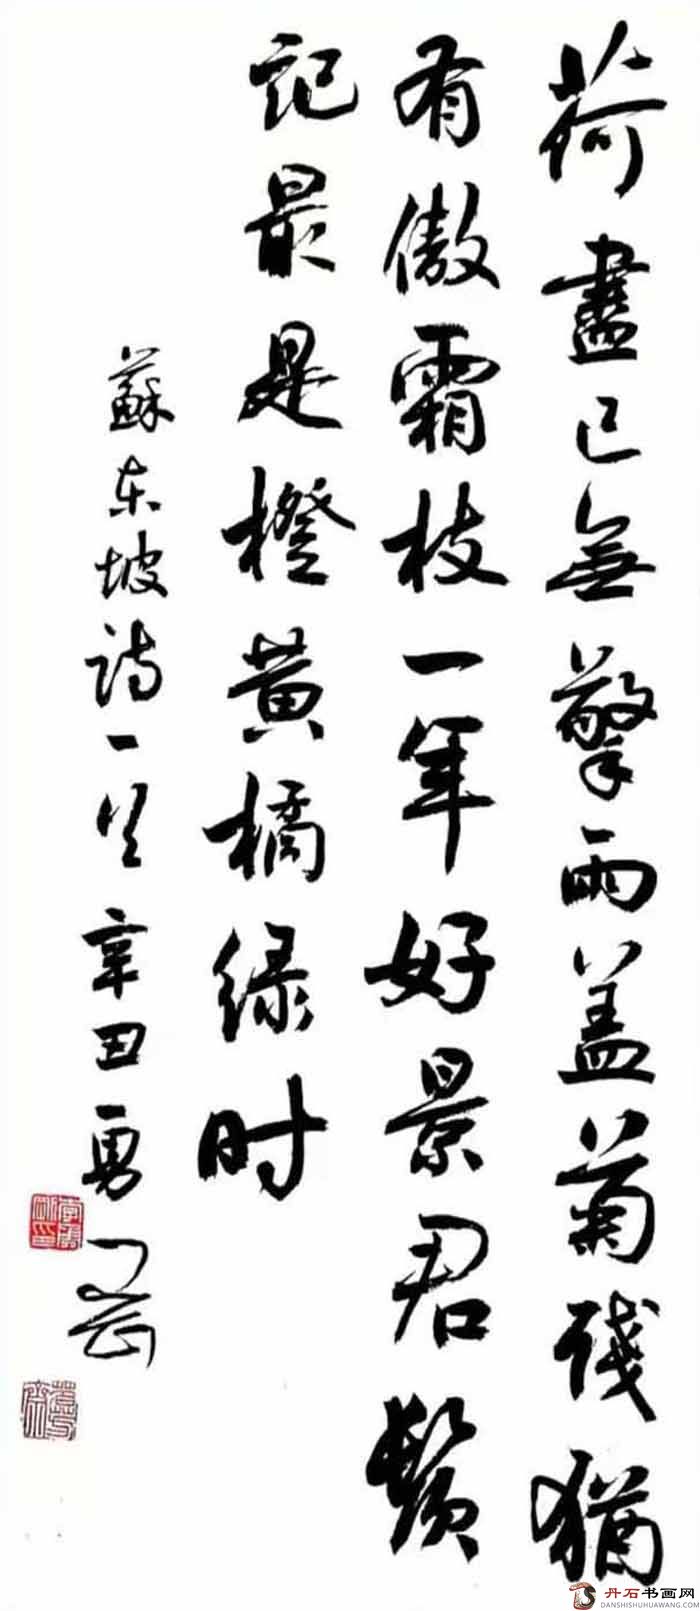 荷盡已無擎雨盖菊残猶
有傲霜枝一年好景君鬚
记最是橙黄橘绿时
蘇东坡诗一首辛丑勇
丹石书画网
DANSHISHUHUAWANG.COM